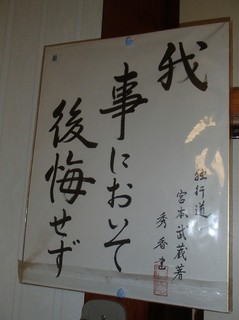 我
事において
後悔せず
独行道
宮本武蔵著
秀香書